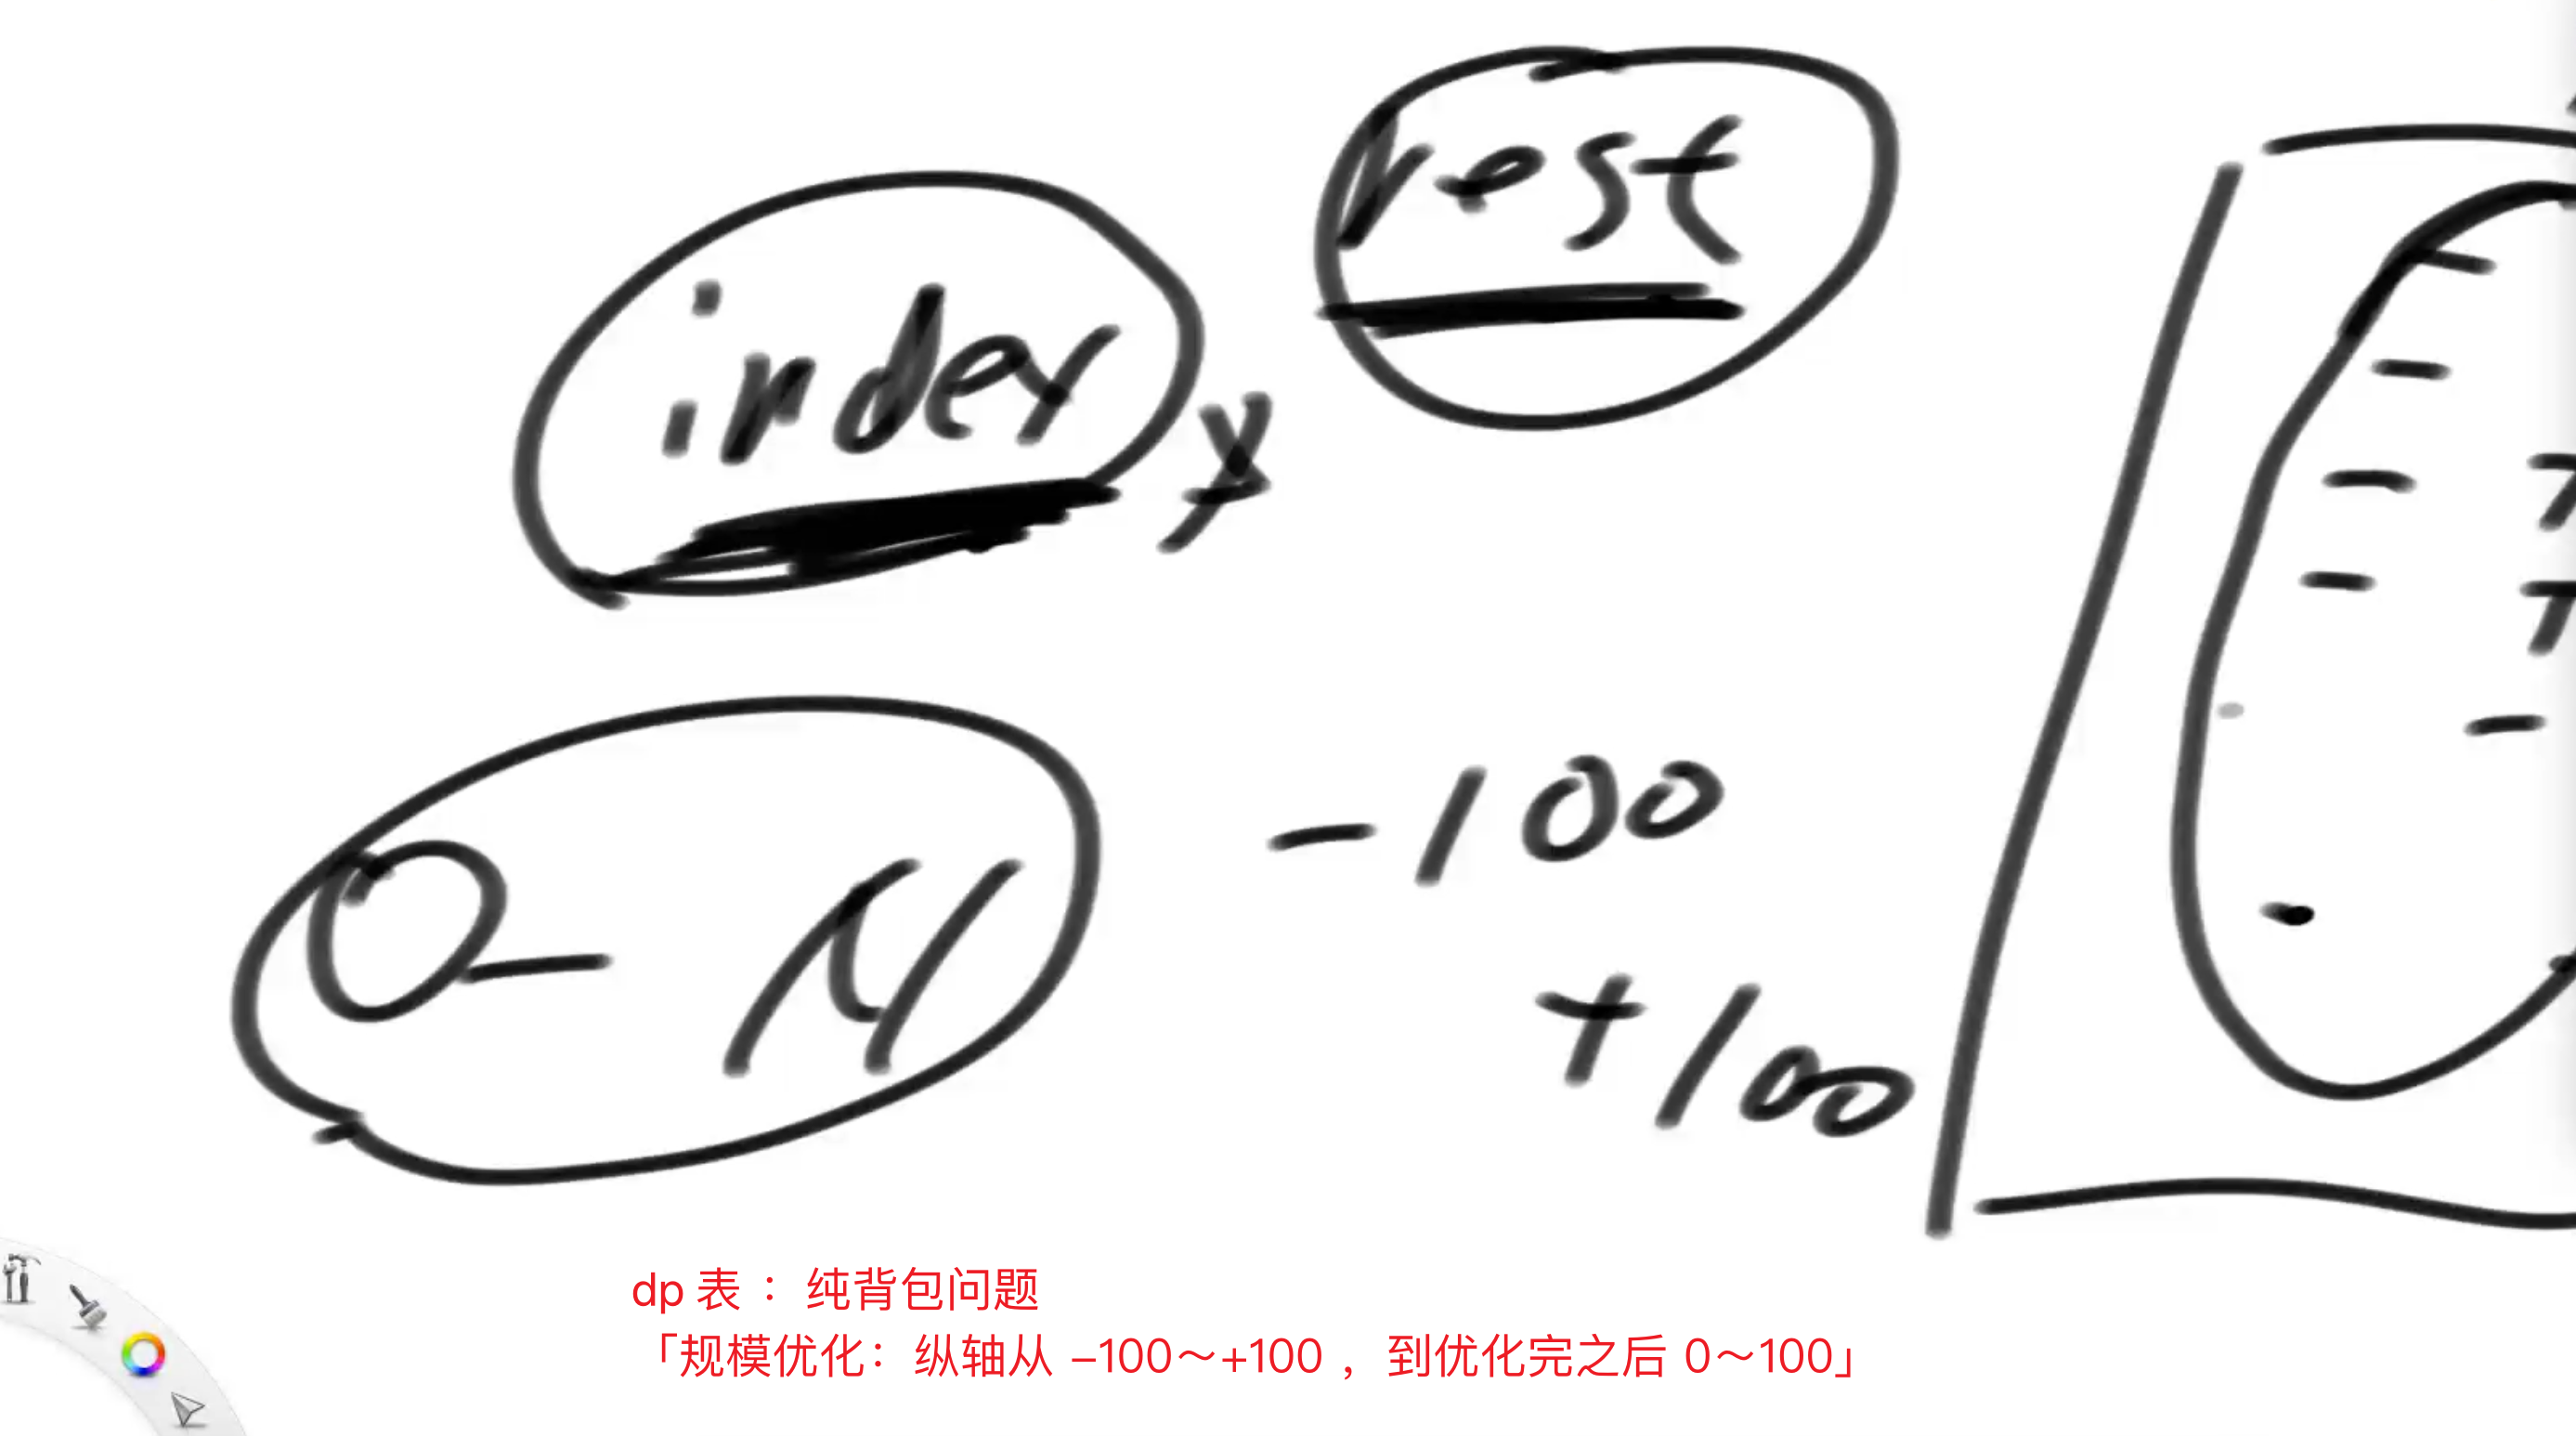 rest
index
0 - N
-100
+100
dp 表 ： 纯背包问题
「规模优化：纵轴从 -100～+100 ，到优化完之后 0～100」